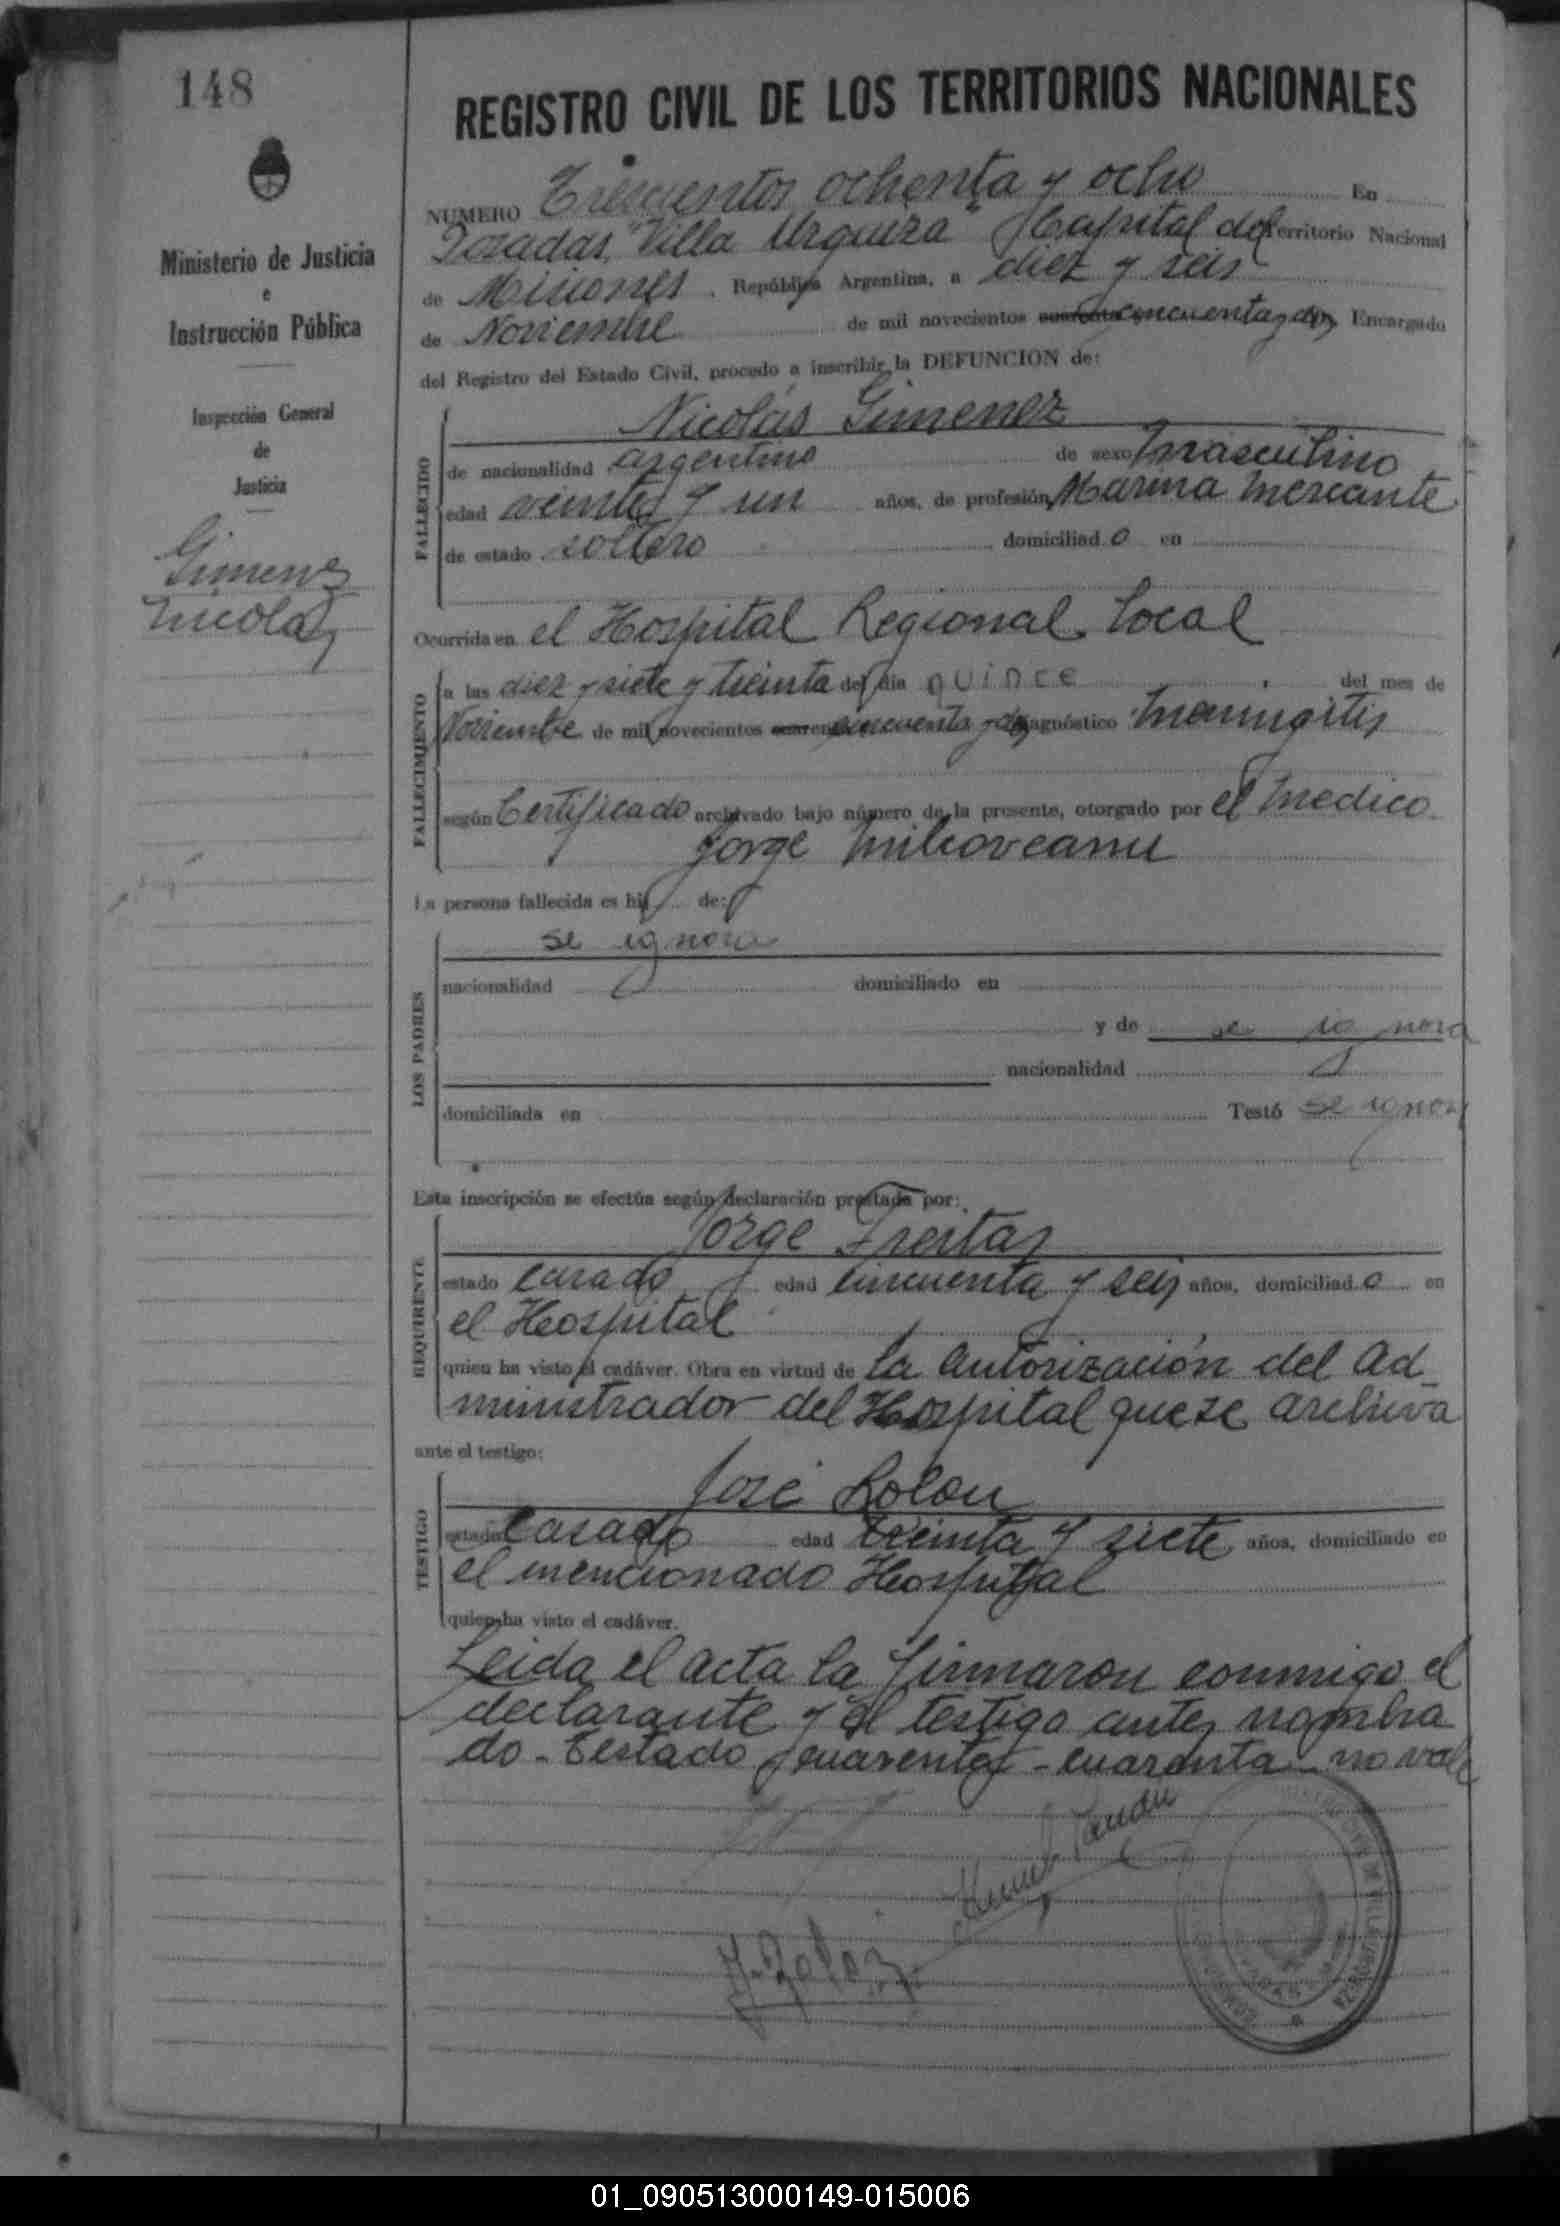 148
REGISTRO CIVIL DE LOS TERRITORIOS NACIONALES
NUMERO Trescientos ochenta y ocho En
Posadas "Villa Urquiza" Capital del Territorio Nacional
de Misiones, República Argentina, a diez y seis
de Noviembre de mil novecientos cuarenta cincuenta y dos Encargado
del Registro del Estado Civil, procedo a inscribir la DEFUNCION de:
Ministerio de Justicia
e
Instrucción Pública
Inspección General
de
Justicia
Gimenez
Nicolas
FALLECIDO
Nicolás Gimenez
de nacionalidad argentino de sexo masculino
edad veinte y un años, de profesión Marina Mercante
de estado soltero domiciliado en
Ocurrida en el Hospital Regional Local
FALLECIMIENTO
a las diez y siete y treinta del dia quince del mes de
Noviembre de mil novecientos cuarenta cincuenta y dos diagnóstico Meningitis
según Certificado archivado bajo número de la presente, otorgado por el Medico
Jorge
La persona fallecida es hij de:
LOS PADRES
se ignora
nacionalidad domiciliado en
y de se ignora
nacionalidad
domiciliada en Testó se ignora
Esta inscripción se efectúa según declaración prestada por:
REQUIRENTE
Jorge Freitas
estado casado edad cincuenta y seis años, domiciliado en
el Hospital
quien ha visto el cadáver. Obra en virtud de la autorización del Ad-
ministrador del Hospital que se archiva
ante el testigo:
TESTIGO
José Rolon
estado casado edad treinta y siete años, domiciliado en
el mencionado Hospital
quien ha visto el cadáver.
Leida el acta la firmaron conmigo el
declarante y el testigo antes nombra
do - Testado cuarenta - cuarenta - no vale
VILLA URQUIZA
01_090513000149-015006